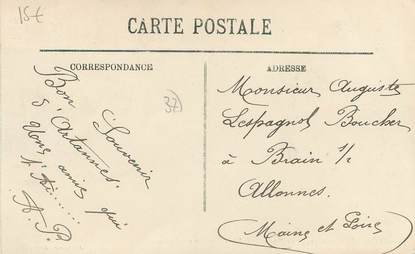 15€
CARTE POSTALE
CORRESPONDANCE
Bon Souvenir
d'Artannes.
amie qui
A. P.
32
ADRESSE
Monsieur Auguste
Lespagnol Boucher
à Brain s/
Allonnes.
Maine et Loire